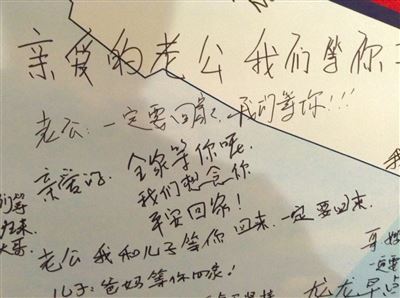 亲爱的老公 我们等你
老公:一定要回家,我们等你!!!
亲爱的: 全家等你呢
我们想念你
平安回家!
老公 我和儿子等你回来,一定要回来.
儿子:爸妈等你回家!
等
归来
大哥.
哥
一定要
龙龙早点